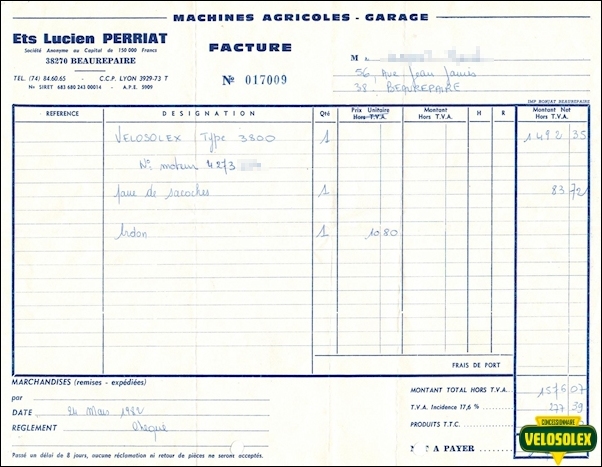 MACHINES AGRICOLES - GARAGE
Ets Lucien PERRIAT
Société Anonyme au Capital de 150 000 Francs
38270 BEAUREPAIRE
TEL. (74) 84.60.65 - C.C.P. LYON 3929-73 T
N° SIRET 683 680 243 00014 - A.P.E. 5909
FACTURE
N° 017009
M
56, Rue Jean Jaurès
38, BEAUREPAIRE
IMP. BORJAT BEAUREPAIRE
REFERENCE DESIGNATION Qté Prix Unitaire Hors T.V.A. Montant Hors T.V.A. H R Montant Net Hors T.V.A.
VELOSOLEX Type 3800 1 1492 35
N° moteur 4273
paire de sacoches 1 83 72
bidon 1 10 80
FRAIS DE PORT
MARCHANDISES (remises - expédiées)
par
DATE 24 Mars 1982
REGLEMENT chèque
Passé un délai de 8 jours, aucune réclamation ni retour de pièces ne seront acceptés.
MONTANT TOTAL HORS T.V.A. 1576 07
T.V.A. Incidence 17,6 % 277 39
PRODUITS T.T.C.
A PAYER
CONCESSIONNAIRE
VELOSOLEX